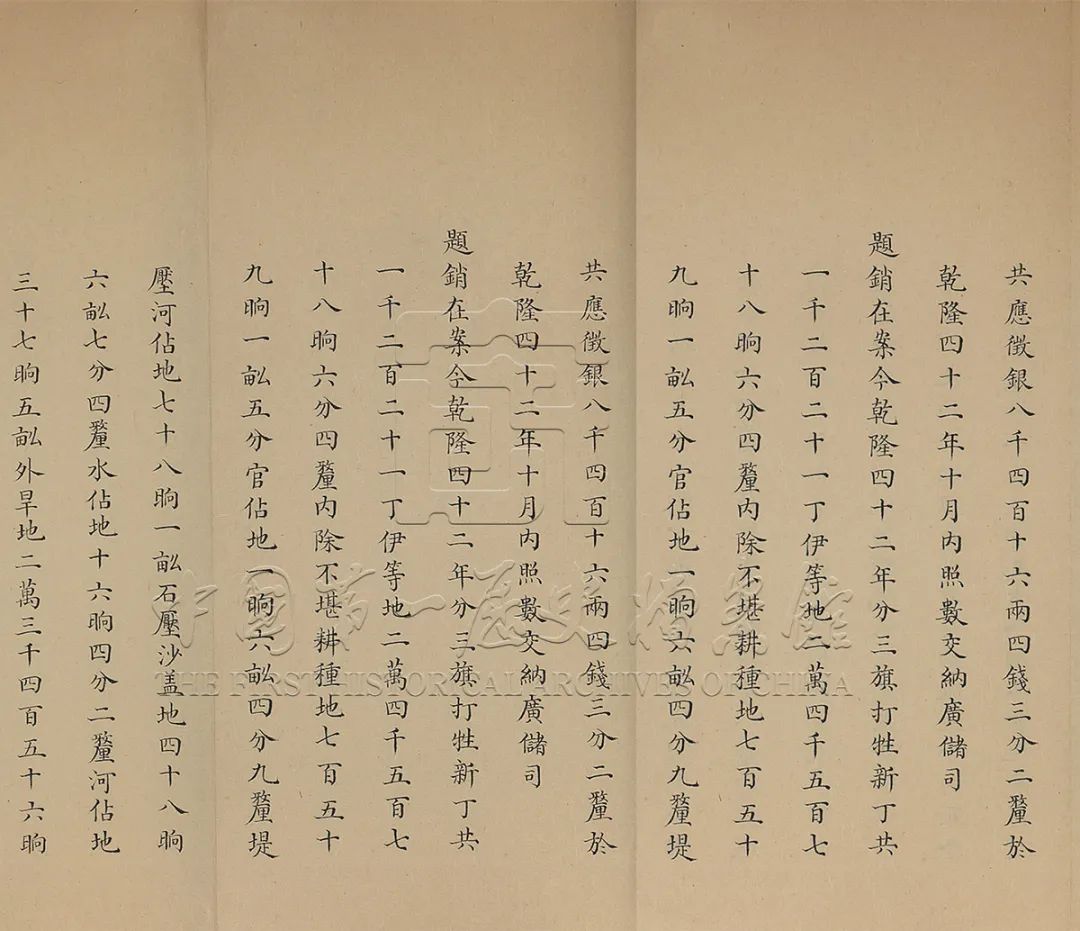 共應徵銀八千四百十六兩四錢三分二釐於
乾隆四十二年十月內照數交納廣儲司
題銷在案今乾隆四十二年分三旗打牲新丁共
一千二百二十一丁伊等地二萬四千五百七
十八晌六分四釐內除不堪耕種地七百五十
九晌一畝五分官佔地一晌六畝四分九釐堤
共應徵銀八千四百十六兩四錢三分二釐於
乾隆四十二年十月內照數交納廣儲司
題銷在案今乾隆四十二年分三旗打牲新丁共
一千二百二十一丁伊等地二萬四千五百七
十八晌六分四釐內除不堪耕種地七百五十
九晌一畝五分官佔地一晌六畝四分九釐堤
壓河佔地七十八晌一畝石壓沙盖地四十八晌
六畝七分四釐水佔地十六晌四分二釐河佔地
三十七晌五畝外旱地二萬三千四百五十六晌
中国第一历史档案馆
THE FIRST HISTORICAL ARCHIVES OF CHINA